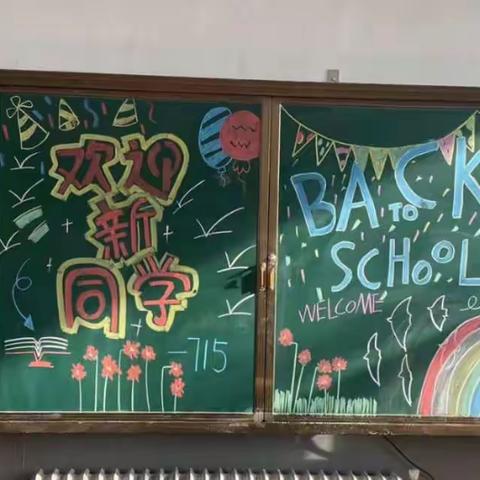 欢迎
新
同学
-715
BACK
TO
SCHOOL
WELCOME